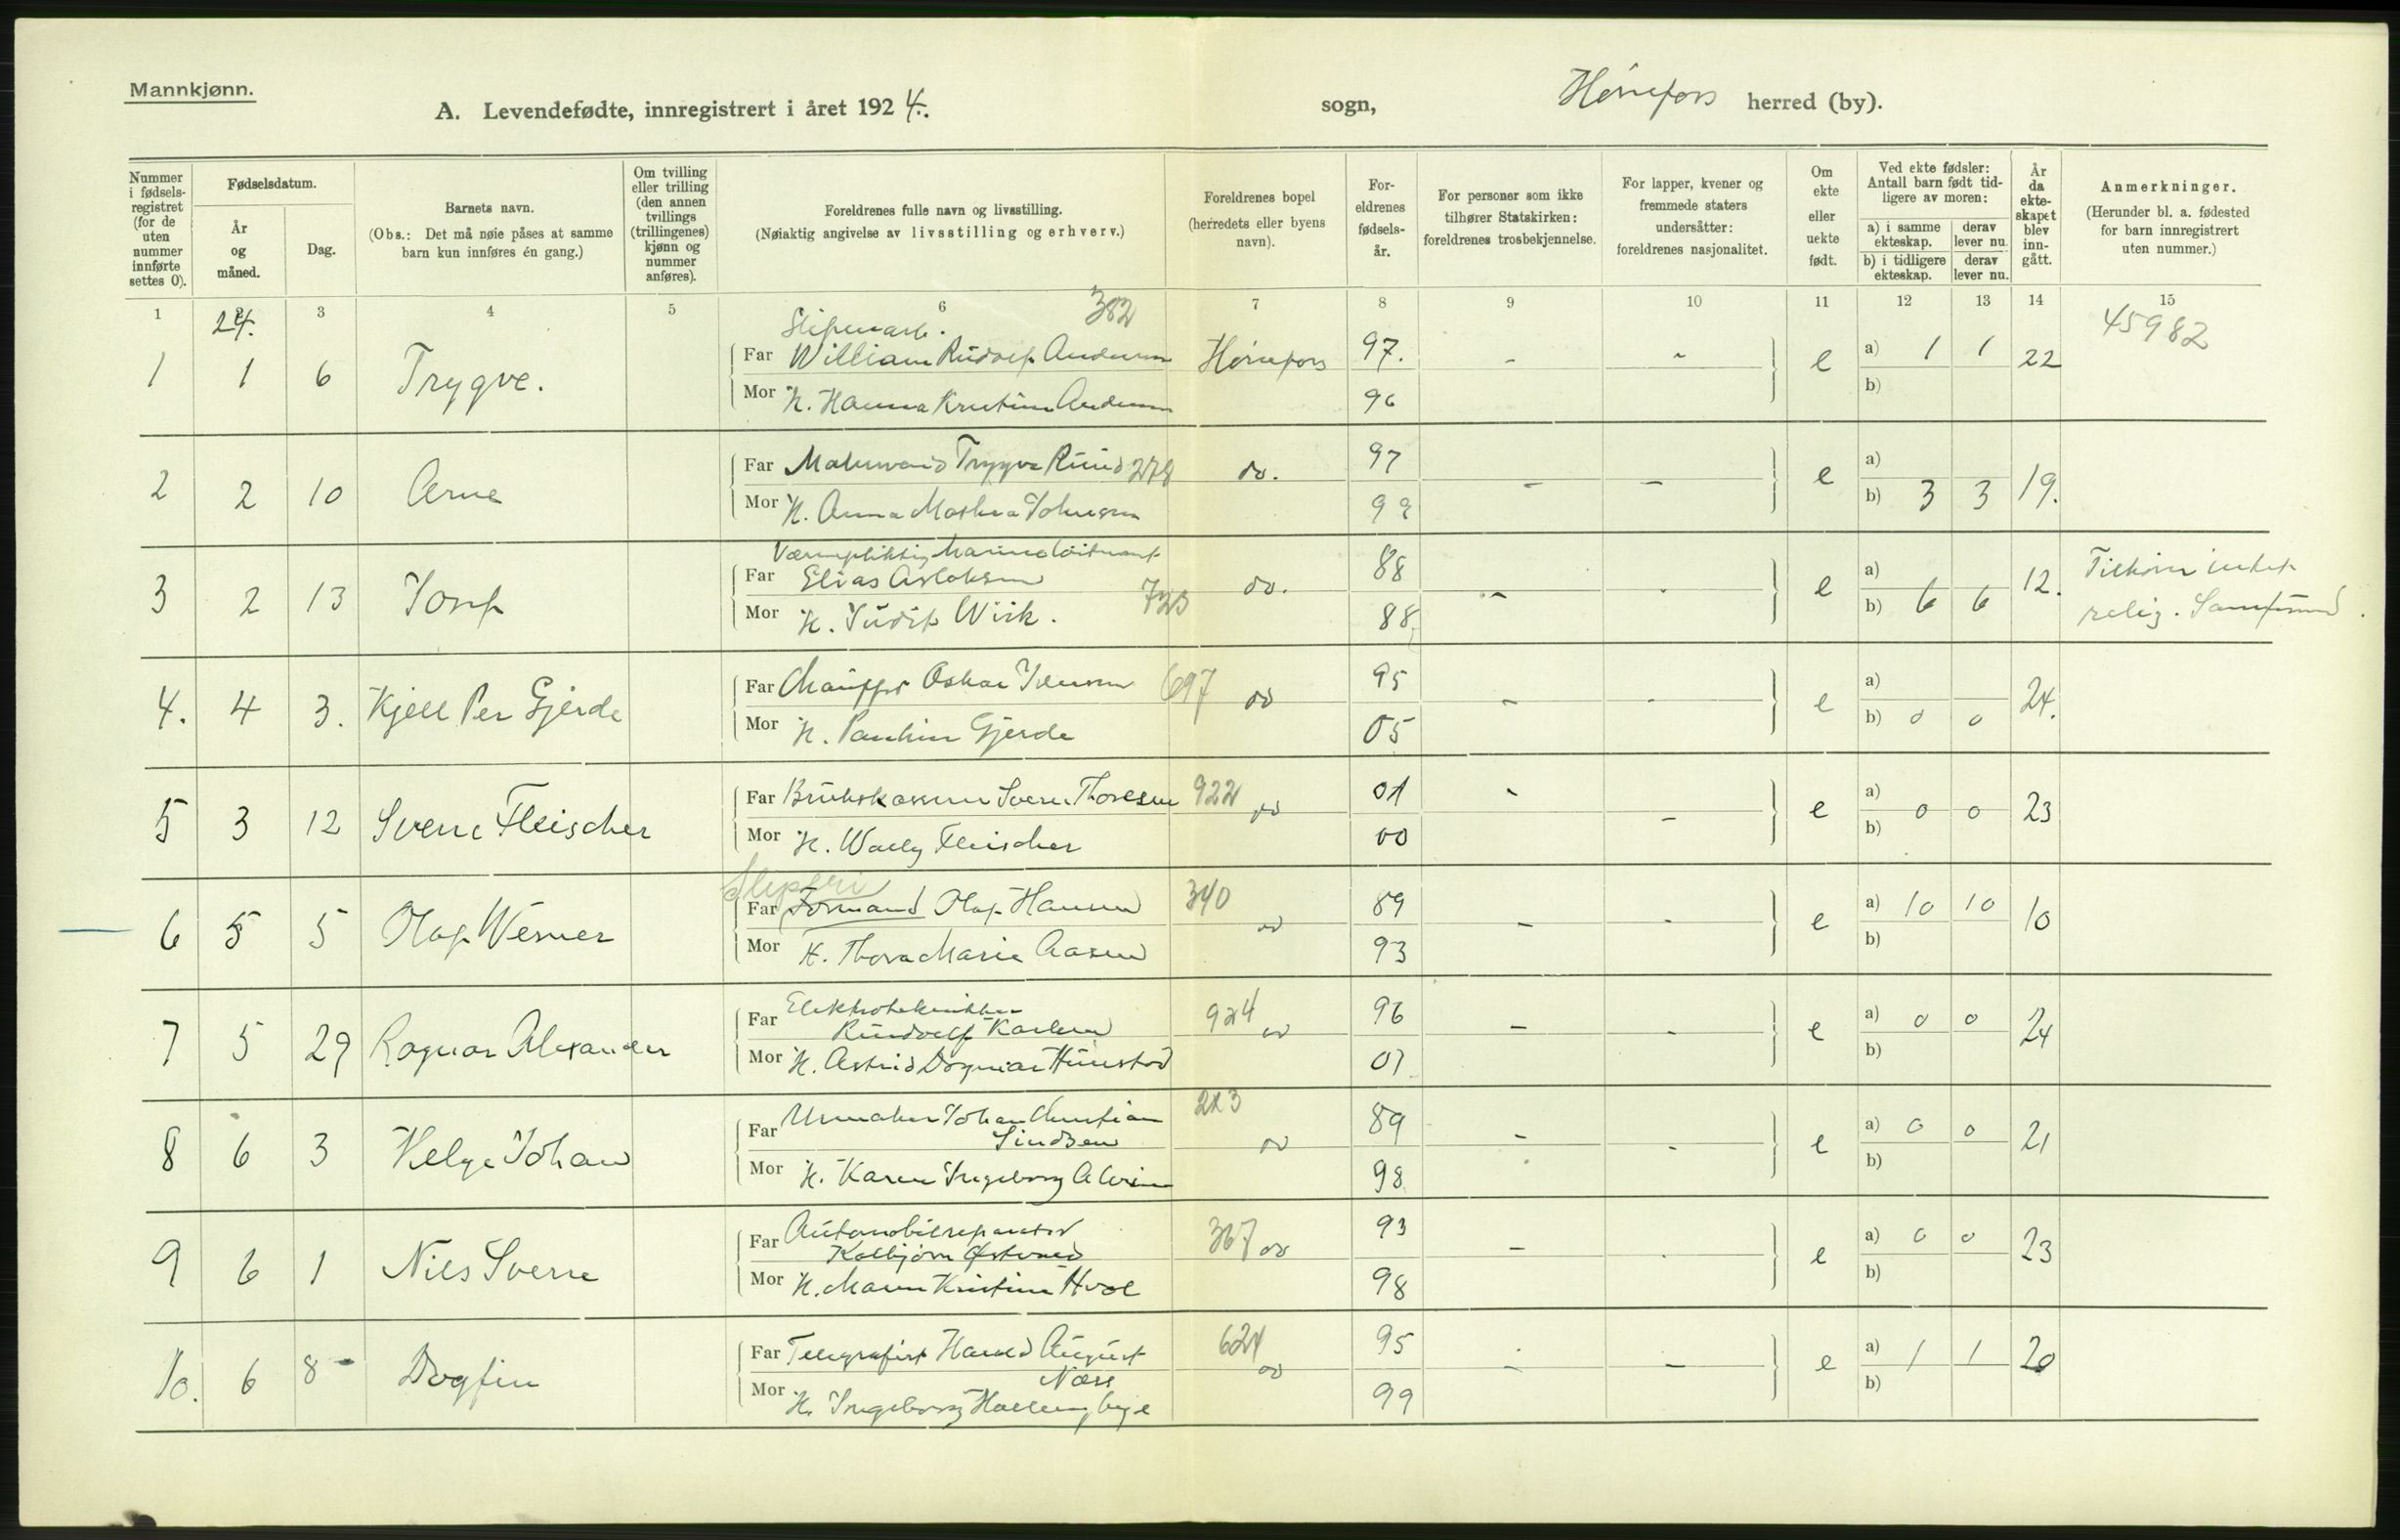 Mannkjønn.
A. Levendefødte, innregistrert i året 1924. sogn, Hønefoss herred (by).
Nummer i fødsels-registret (for de uten nummer innførte settes 0).
Fødselsdatum.
År og måned.
Dag.
Barnets navn.
(Obs.: Det må nøie påses at samme barn kun innføres én gang.)
Om tvilling eller trilling (den annen tvillings (trillingenes) kjønn og nummer anføres).
Foreldrenes fulle navn og livsstilling.
(Nøiaktig angivelse av livsstilling og erhverv.)
Foreldrenes bopel (herredets eller byens navn).
For-eldrenes fødsels-år.
For personer som ikke tilhører Statskirken: foreldrenes trosbekjennelse.
For lapper, kvener og fremmede staters undersåtter: foreldrenes nasjonalitet.
Om ekte eller uekte født.
Ved ekte fødsler: Antall barn født tid-ligere av moren:
a) i samme ekteskap. derav lever nu.
b) i tidligere ekteskap. derav lever nu.
År da ekte-skapet blev inn-gått.
Anmerkninger.
(Herunder bl. a. fødested for barn innregistrert uten nummer.)
1 2 3 4 5 6 7 8 9 10 11 12 13 14 15
24. 382 45982
1 1 6 Trygve. Far William Rudolf Andersen Hønefoss 97. - - e a) 1 1 22
Mor H. Hanna Kristine Andersen 96 b)
2 2 10 Arne Far Trygve Ruud 278 do. 97 - - e a) 19.
Mor H. Anna Mathea Johnsen 99 b) 3 3
Værnepliktig Marineløitnant
3 2 13 Josef Far Elias Aslaksen 723 do. 88 - - e a) 12. Tilhører intet
Mor H. Judit Wiik. 88. b) 6 6 relig. Samfund.
4. 4 3. Kjell Per Gjerde Far Chauffør Oskar Iversen 697 do 95 - - e a) 24.
Mor H. Pauline Gjerde 05 b) 0 0
5 3 12 Sverre Fleischer Far Sverre Thoresen 922 do 01 - - e a) 0 0 23
Mor H. Wally Fleischer 00 b)
Sliperi
6 5 5 Olaf Werner Far Formand Olaf Hansen 340 do 89 - - e a) 10 10 10
Mor H. Thora Marie Aasen 93 b)
Elektrotekniker
7 5 29 Ragnar Alexander Far Rundolf Karlsen 924 do 96 - - e a) 0 0 24
Mor H. Astrid Dagmar 01 b)
8 6 3 Helge Johan Far Urmaker Johan Christian 213 do 89 - - e a) 0 0 21
Lindsen
Mor H. Karen Ingeborg 98 b)
9 6 1 Nils Sverre Far Automobilreparatør 367 do 93 - - e a) 0 0 23
Kolbjørn Østvold
Mor H. Maren Kristine Hvol 98 b)
10. 6 8 Dagfin Far Telegrafist Harald August 624 do 95 - - e a) 1 1 20
Næss
Mor H. Ingeborg Hallingbye 99 b)